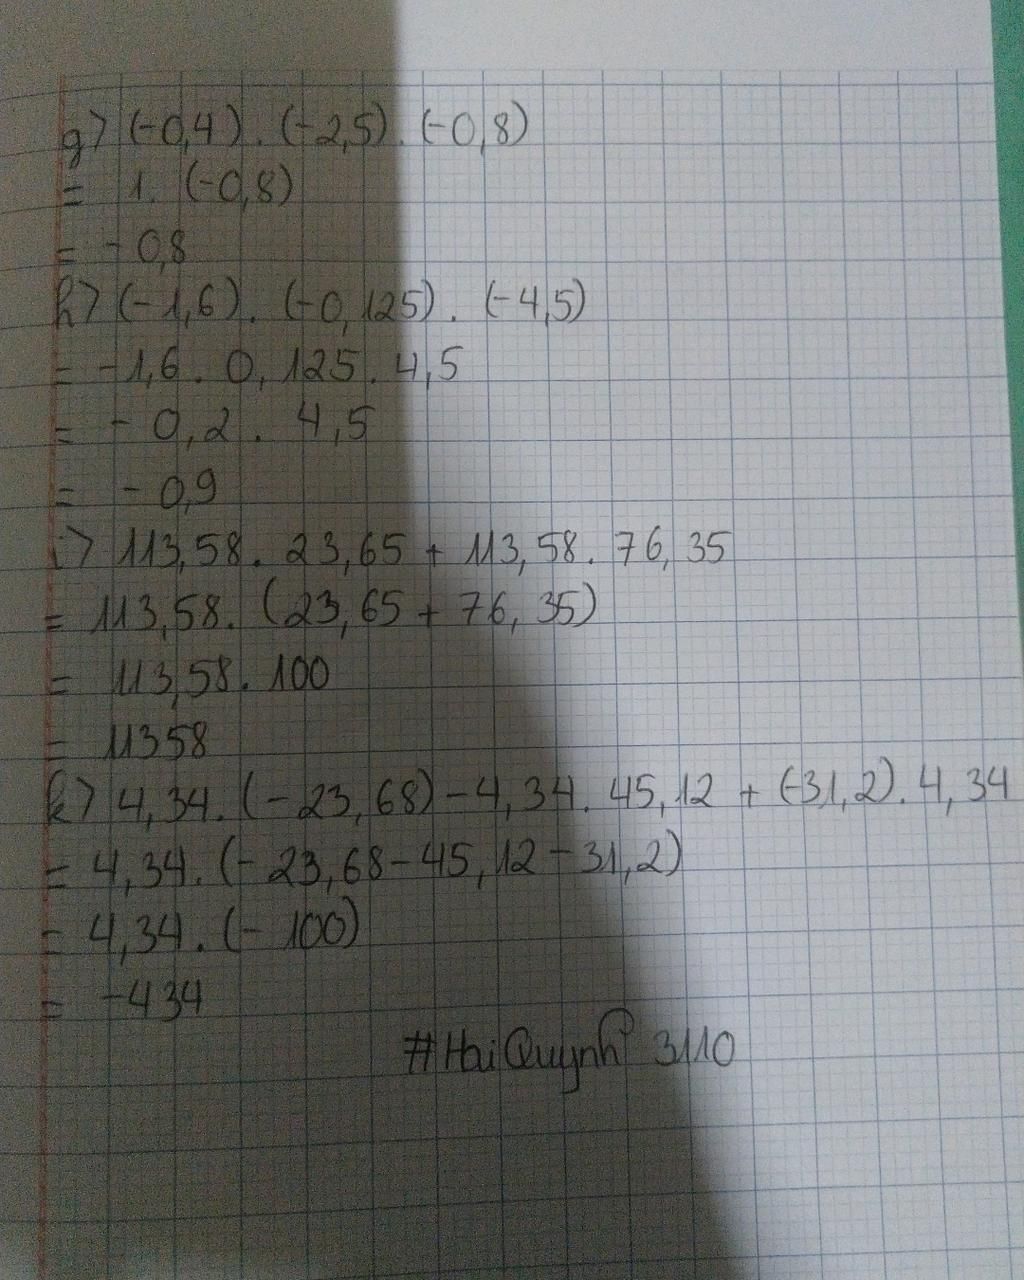 g) (-0,4) . (-2,5) . (-0,8)
= 1. (-0,8)
= -0,8
h) (-1,6) . (-0,125) . (-4,5)
= -1,6 . 0,125 . 4,5
= -0,2 . 4,5
= -0,9
i) 113,58 . 23,65 + 113,58 . 76,35
= 113,58. (23,65 + 76,35)
= 113,58 . 100
= 11358
k) 4,34. (-23,68) - 4,34. 45,12 + (-31,2) . 4,34
= 4,34. (-23,68-45,12-31,2)
= 4,34 . (-100)
= -434
#HaiQuynh 3110